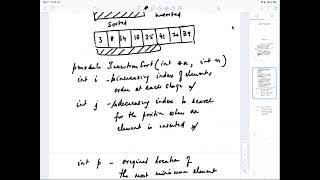 Sorted unsorted
3 8 14 18 35 41 20 39
procedure InsertionSort (int *a, int n)
int i - increasing index of elements
order at each stage */
int j - decreasing index to search
for the position where an
element is inserted */
int p - original location of
the most minimum element